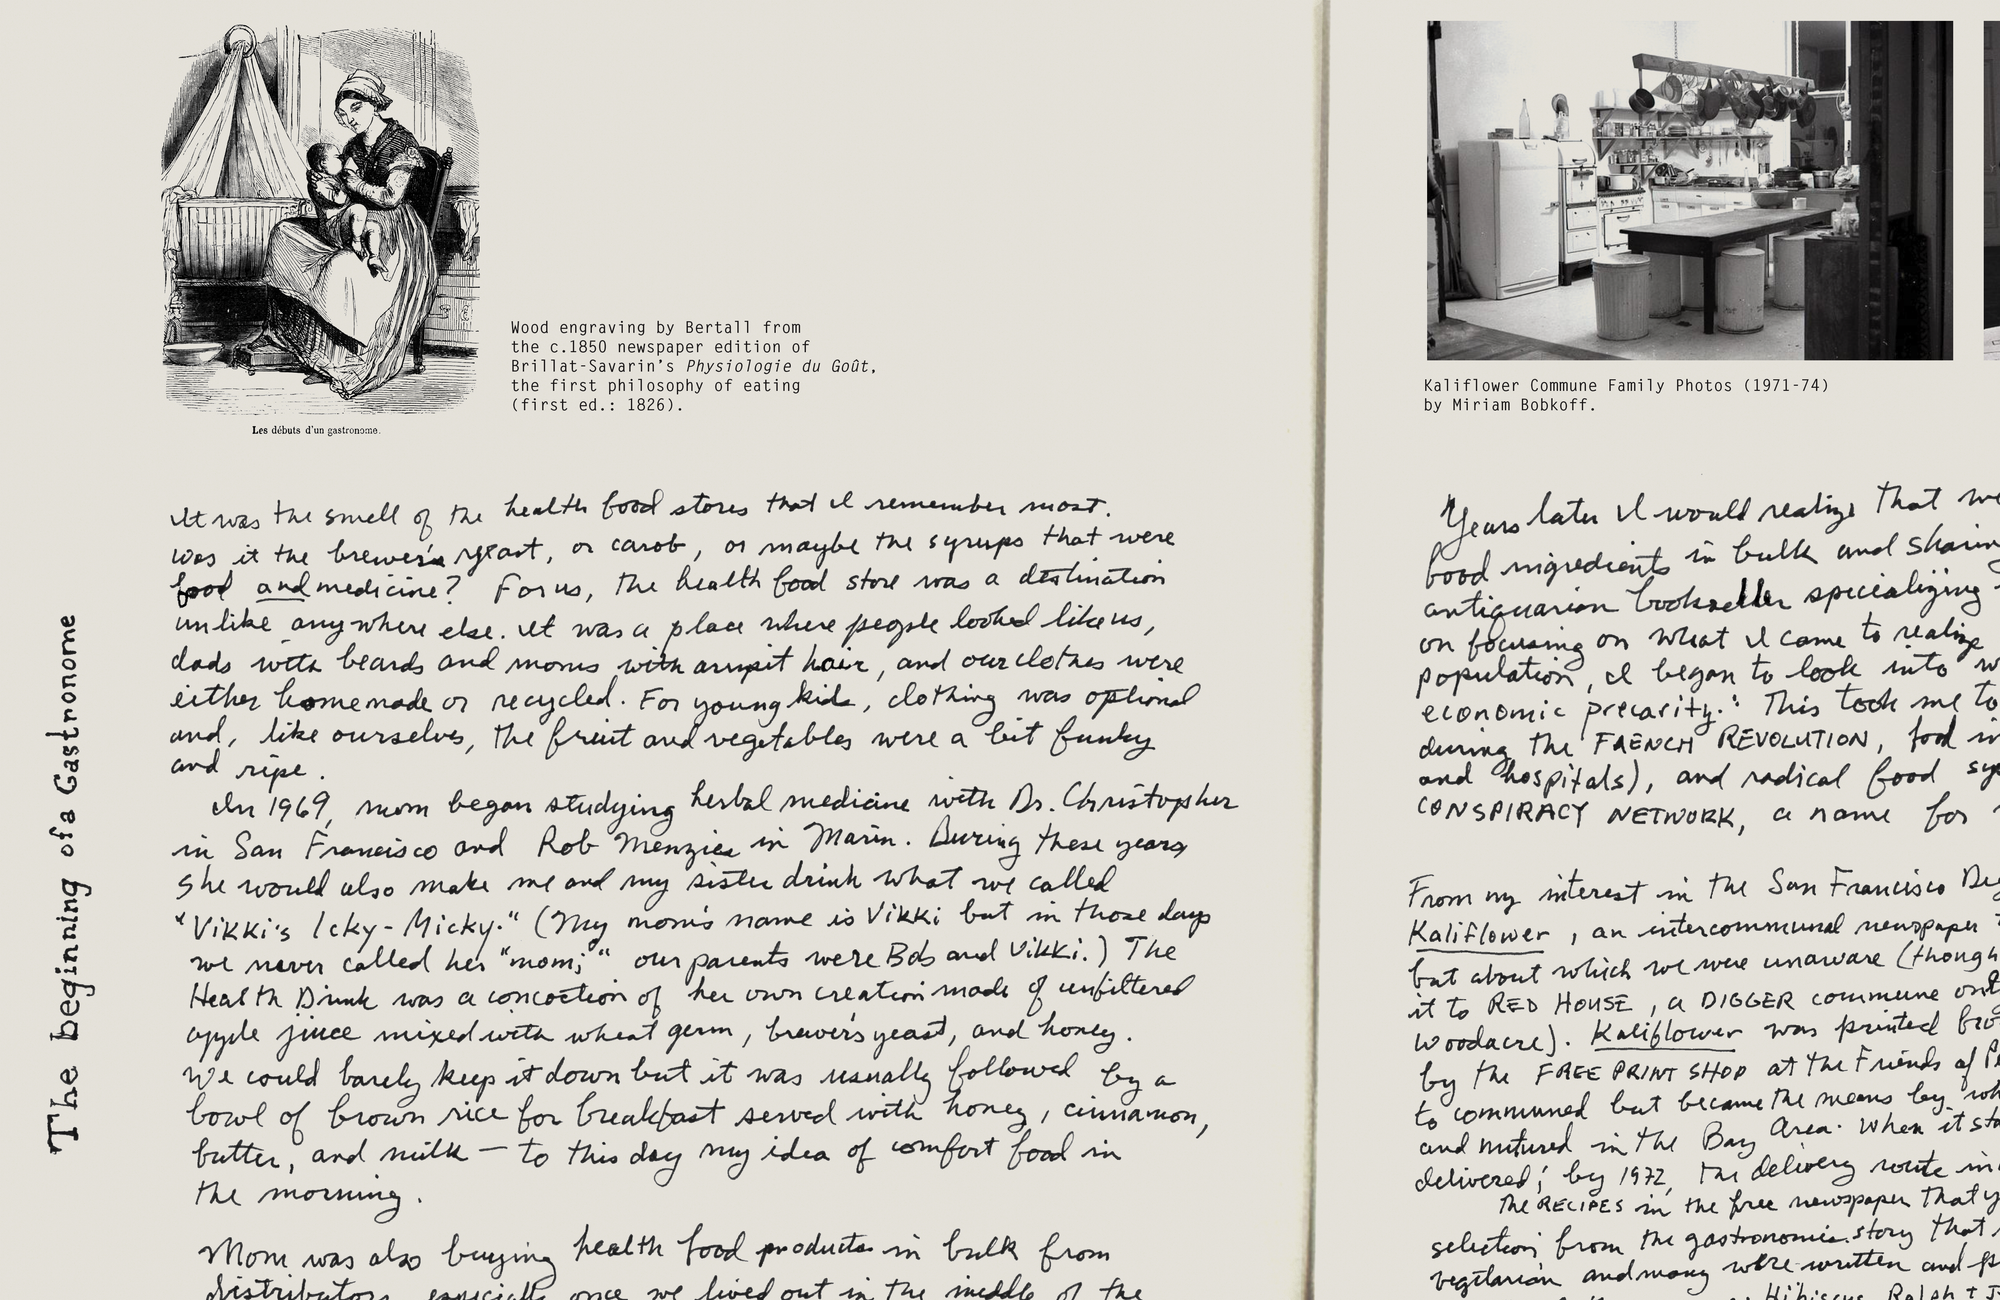 The beginning of a Gastronome
Les débuts d'un gastronome.
Wood engraving by Bertall from
the c.1850 newspaper edition of
Brillat-Savarin's Physiologie du Goût,
the first philosophy of eating
(first ed.: 1826).
It was the smell of the health food stores that I remember most.
Was it the brewer's yeast, or carob, or maybe the syrups that were
food and medicine? For us, the health food store was a destination
unlike anywhere else. It was a place where people looked like us,
dads with beards and moms with armpit hair, and our clothes were
either homemade or recycled. For young kids, clothing was optional
and, like ourselves, the fruit and vegetables were a bit funky
and ripe.
In 1969, mom began studying herbal medicine with Dr. Christopher
in San Francisco and Rob Menzies in Marin. During these years
she would also make me and my sister drink what we called
"Vikki's Icky-Micky." (My mom's name is Vikki but in those days
we never called her "mom;" our parents were Bob and Vikki.) The
Health Drink was a concoction of her own creation made of unfiltered
apple juice mixed with wheat germ, brewer's yeast, and honey.
We could barely keep it down but it was usually followed by a
bowl of brown rice for breakfast served with honey, cinnamon,
butter, and milk — to this day my idea of comfort food in
the morning.
Mom was also buying health food products in bulk from
distributors, especially once we lived out in the middle of the
Kaliflower Commune Family Photos (1971-74)
by Miriam Bobkoff.
Years later I would realize that we
food ingredients in bulk and sharing
antiquarian bookseller specializing
on focusing on what I came to realize
population, I began to look into
economic precarity." This took me to
during the FRENCH REVOLUTION, food
and hospitals), and radical food
CONSPIRACY NETWORK, a name for
From my interest in the San Francisco
Kaliflower, an intercommunal newspaper
but about which we were unaware (though
it to RED HOUSE, a DIGGER commune
Woodacre). Kaliflower was printed
by the FREE PRINT SHOP at the Friends of
to communed but became the means by
and nutured in the Bay Area. When it
delivered; by 1972, the delivery route in
The RECIPES in the free newspaper that
selection from the gastronomic story that
vegetarian and many were written and
Hibiscus, Ralph +